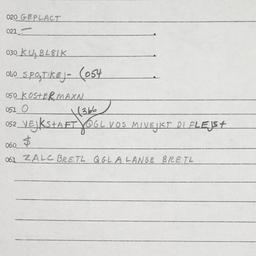 020 GEPLACT
021 —
030 KU, BLBIK
040 SPO,TIKEJ- (054
050 KOSTERMAXN
051 O (366
052 VEJKSTAFT QGL VOS MIVEJKT DI FLEJST
060 $
061 ZALC BRETL QGL A LANGE BRETL